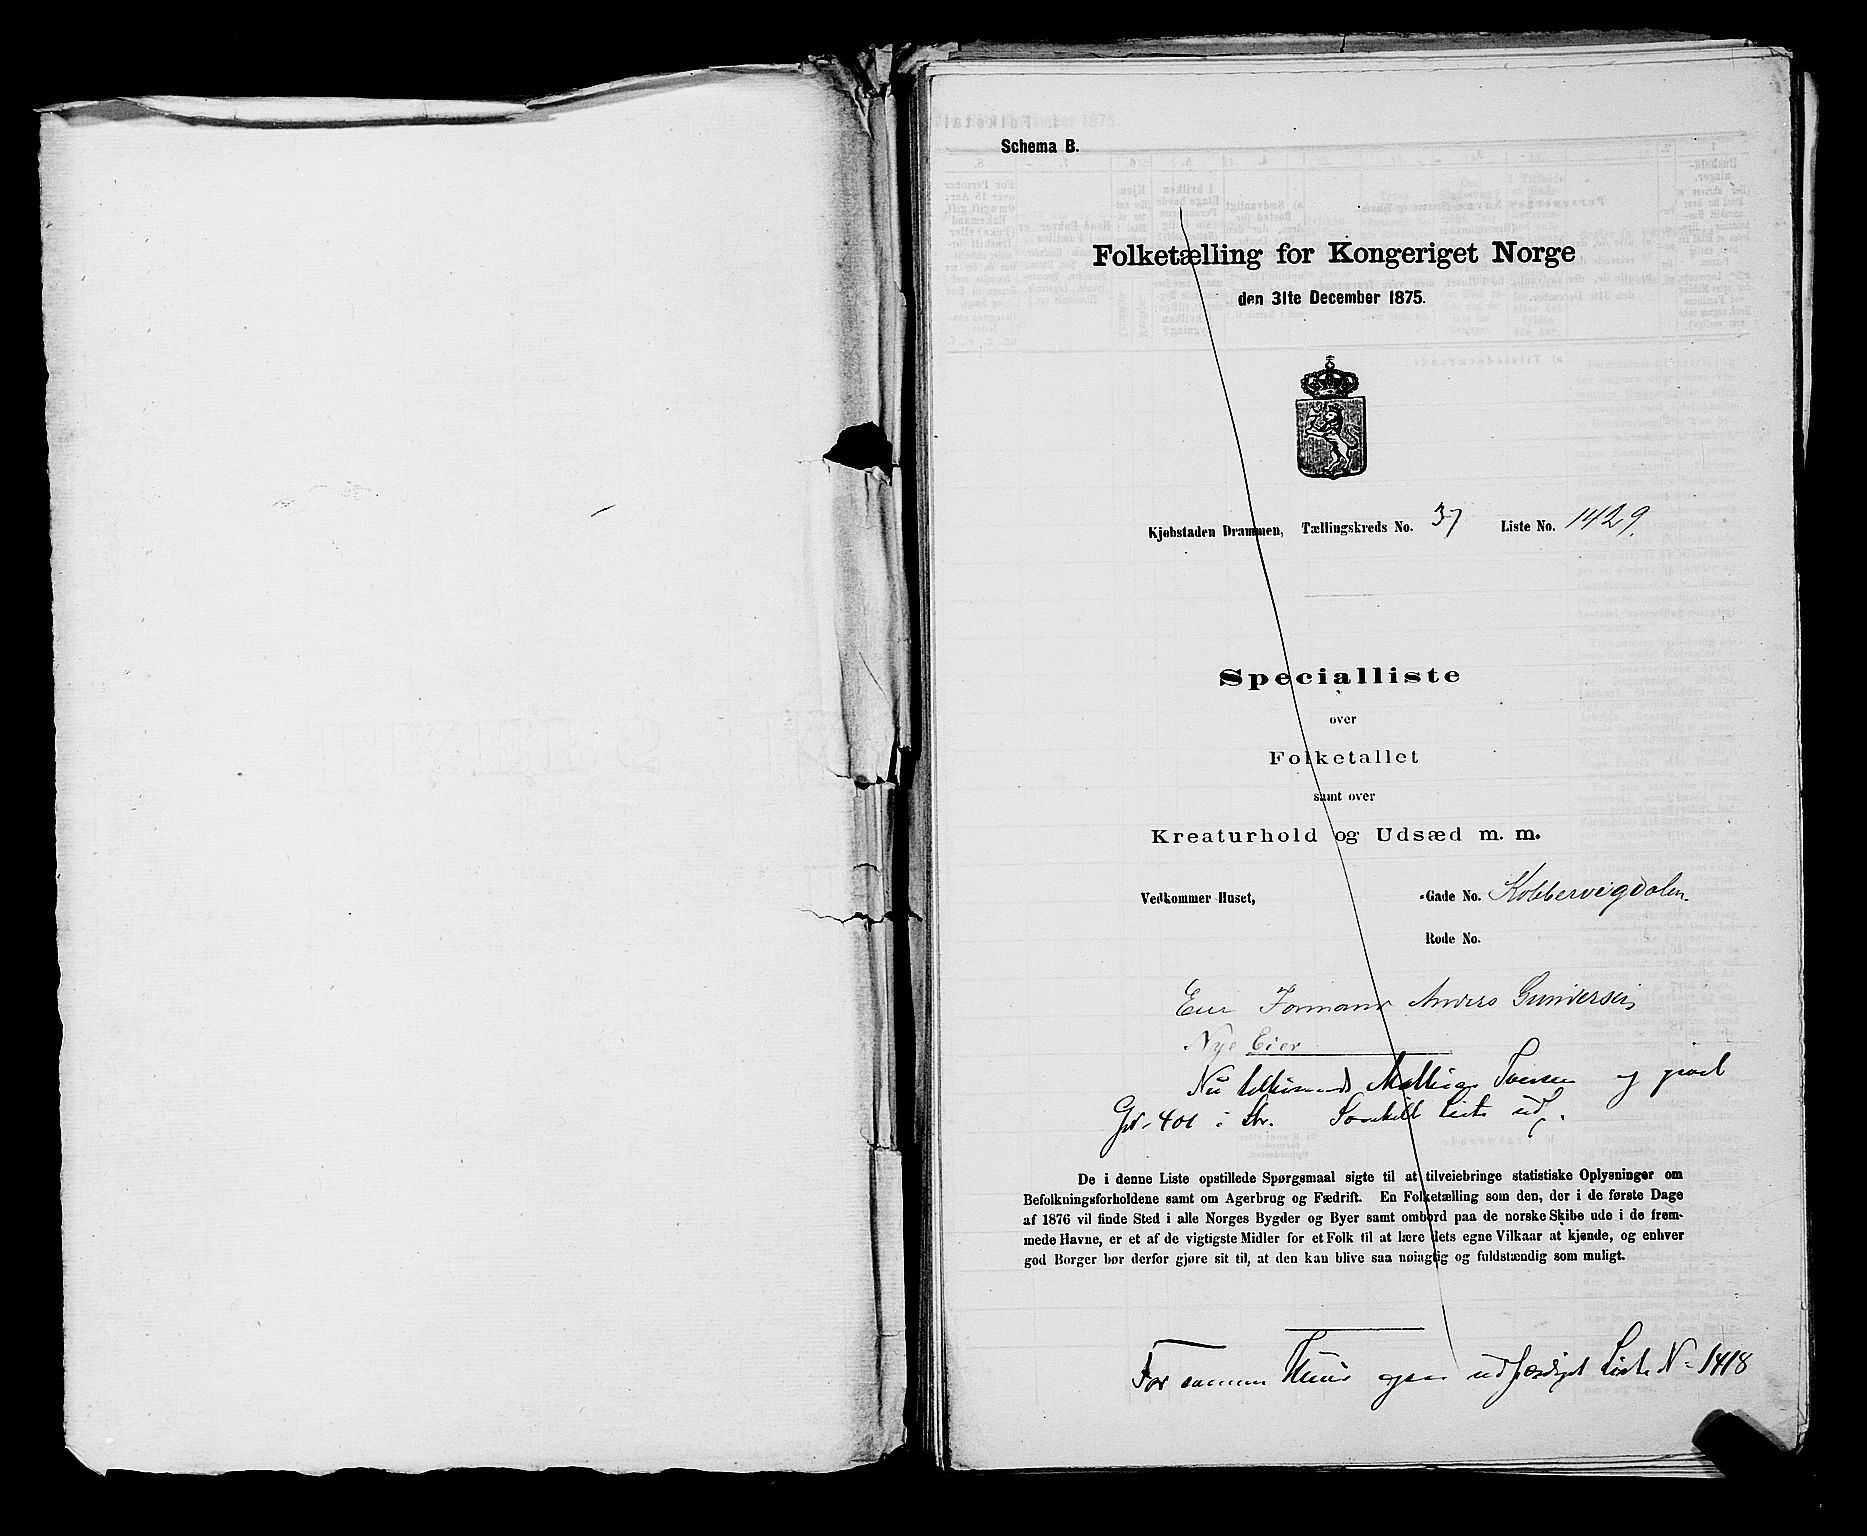 Schema B.
Folketælling for Kongeriget Norge
den 31te December 1875.
Kjøbstaden Drammen, Tællingskreds No. 37 Liste No. 1429.
Specialliste
over
Folketallet
samt over
Kreaturhold og Udsæd m. m.
Vedkommer Huset, -Gade No. Kobbervigdalen.
Rode No.
Eier Formand Anders Gundersen
Nye Eier
Nu Mathias Iversen og
401 i Str. Liste
De i denne Liste opstillede Spørgsmaal sigte til at tilveiebringe statistiske Oplysninger om
Befolkningsforholdene samt om Agerbrug og Fædrift. En Folketælling som den, der i de første Dage
af 1876 vil finde Sted i alle Norges Bygder og Byer samt ombord paa de norske Skibe ude i de frem-
mede Havne, er et af de vigtigste Midler for et Folk til at lære dets egne Vilkaar at kjende, og enhver
god Borger bør derfor gjøre sit til, at den kan blive saa nøiagtig og fuldstændig som muligt.
For samme Huus ogsaa udfærdiget Liste N. 1418